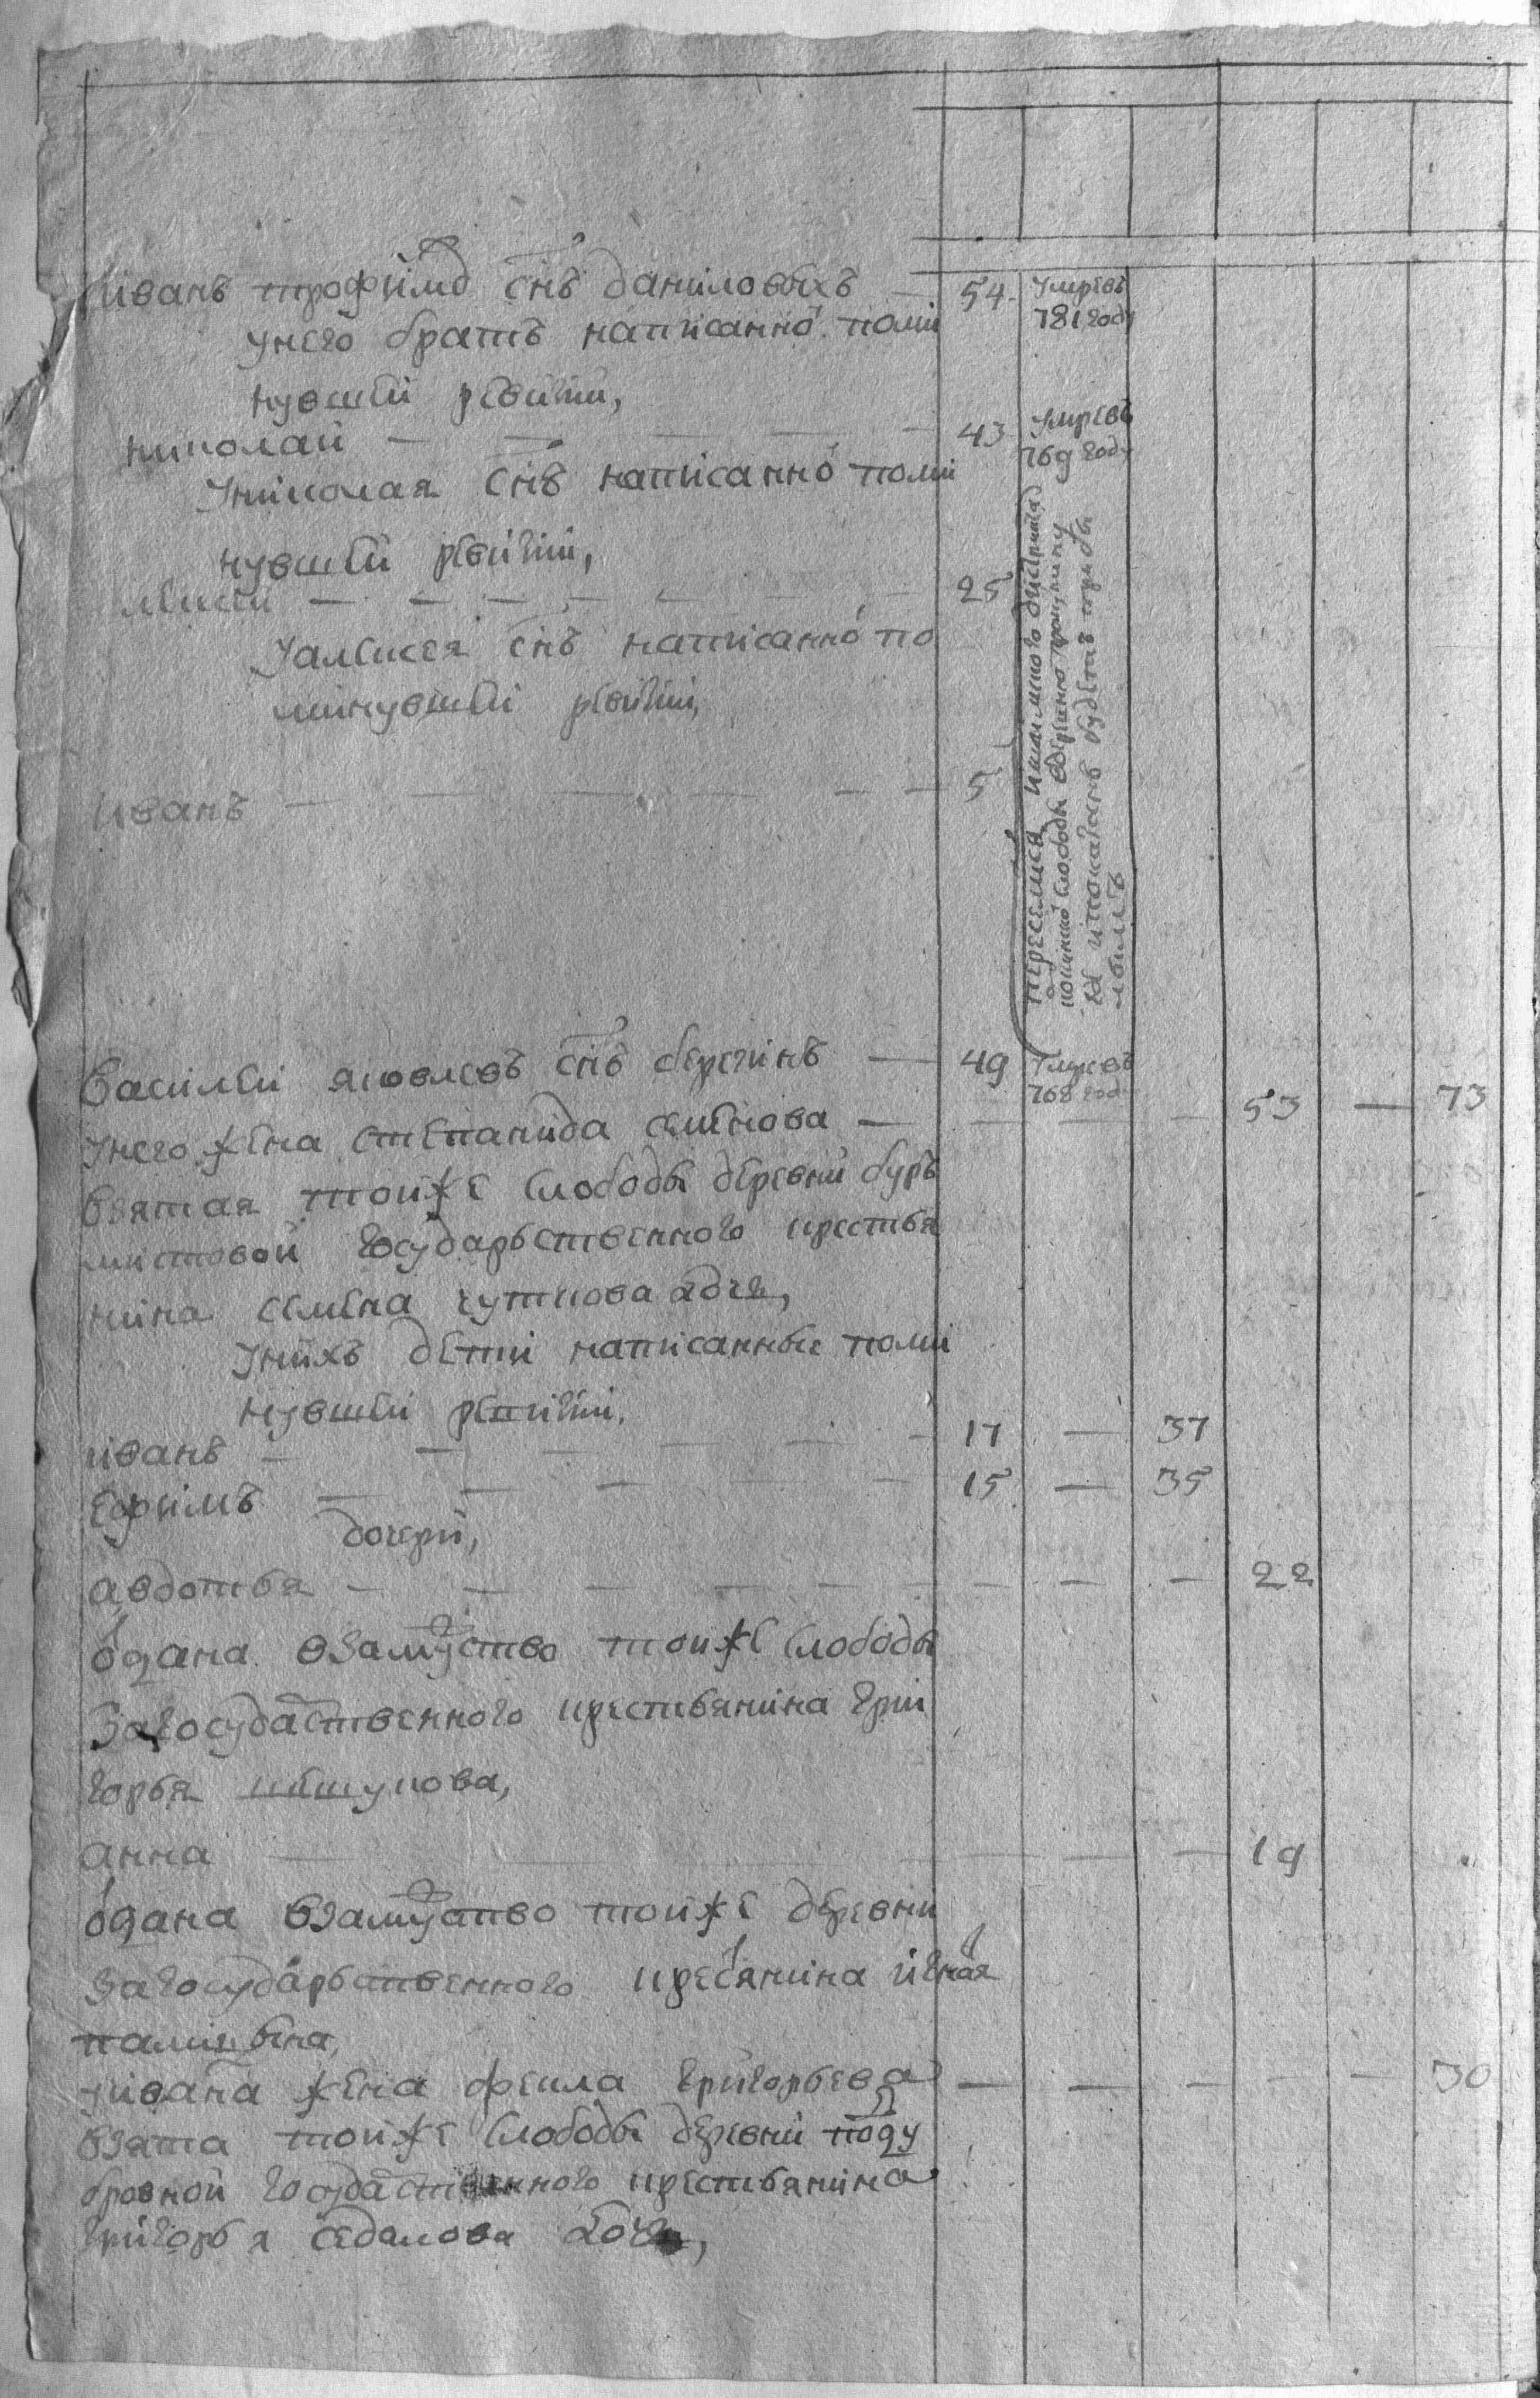 иванъ трофимо снъ даниловыхъ — 54 — умре въ
781 году
унего братъ написанно поми
нувшеи ревизии,
николаи — — — — — 43 умре въ
769 году
униколая снъ написанно поми
нувшеи ревизии,
— — — — — — 25
уалексея снъ написанно по
минувшеи ревизии,
иванъ — — — — — 5
переселися
слободы
и показанъ будетъ
василеи яковлевъ снъ берегинъ — 49 умре въ
768 году
унего жена степанида семенова — — — — 53 — 73
взятая тоиже слободы деревни буръ
мистовои государьственного крестья
нина семена дочь,
унихъ дети написанные поми
нувшеи ревизии,
иванъ — — — — — — 17 — 37
ефимъ — — — — — 15 — 35
дочери,
авдотья — — — — — — — — — 22
одана взамуство тоиже слободы
загосударственного крестьянина гри
горья
анна — — — — — 19
одана взамуство тоиже деревни
загосударьственного кресянина игная
уивана жена фекла григорьева — — — — — 30
взята тоиже слободы деревни поду
бровнои государственного крестьянина
григорья седалова дочь,